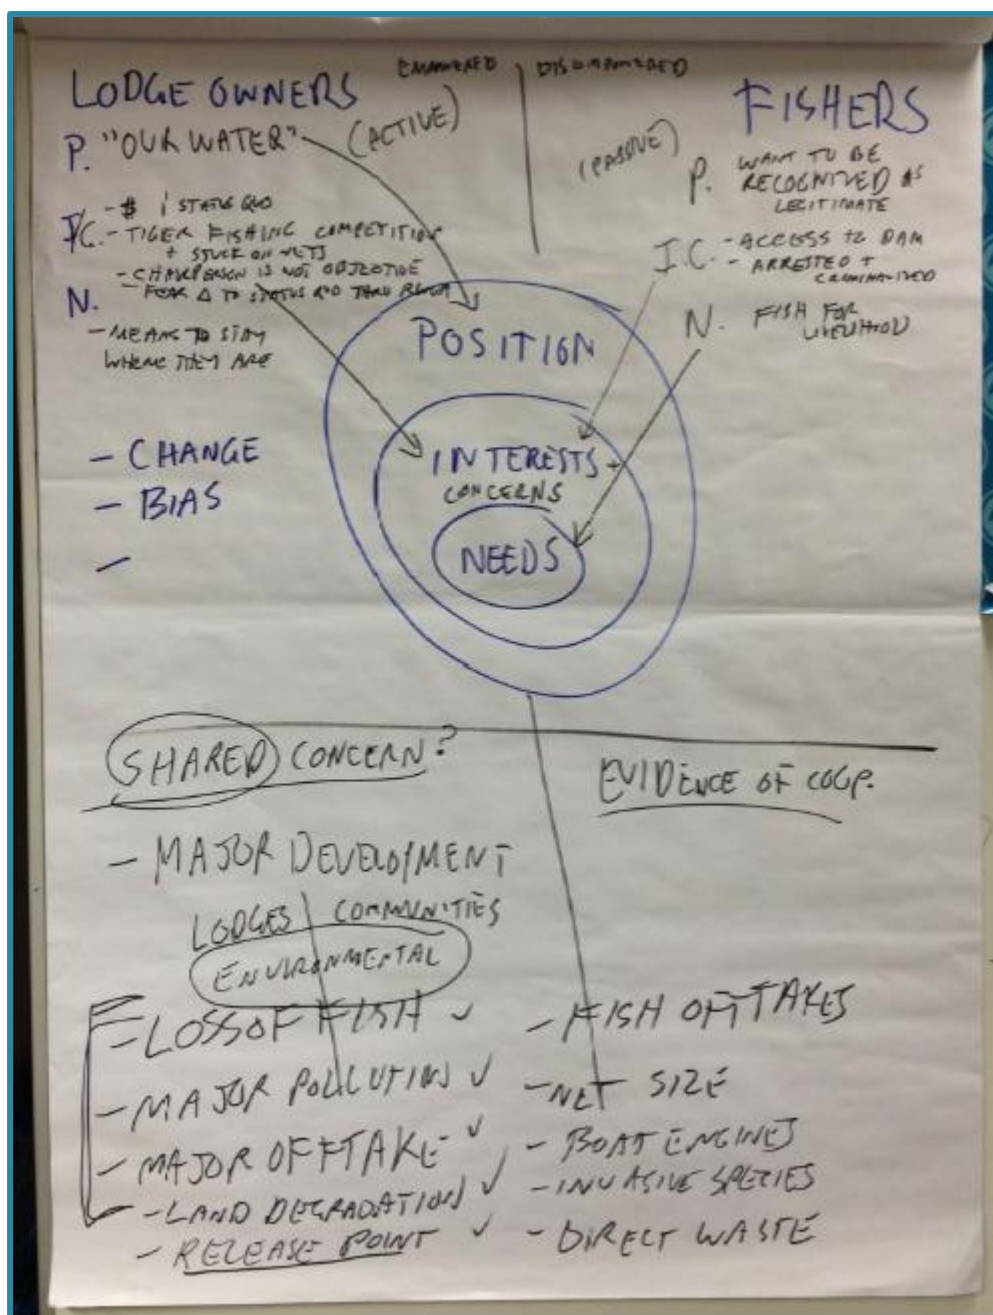 LODGE OWNERS
P. "OUR WATER"
(ACTIVE)
I/C. - $ / STATUS QUO
- TIGER FISHING COMPETITION
+ STUCK ON NETS
- CHAIRPERSON IS NOT OBJECTIVE
- FEAR Δ TO STATUS QUO THRU
N.
- MEANS TO STAY
WHERE THEY ARE
- CHANGE
- BIAS
-
FISHERS
(PASSIVE)
P. WANT TO BE
RECOGNIZED AS
LEGITIMATE
I.C. - ACCESS TO DAM
- ARRESTED +
CRIMINALIZED
N. FISH FOR
LIVELIHOOD
POSITION
INTERESTS
CONCERNS
NEEDS
SHARED CONCERN?
- MAJOR DEVELOPMENT
LODGES | COMMUNITIES
ENVIRONMENTAL
- LOSS OF FISH ✓
- MAJOR POLLUTION ✓
- MAJOR OFFTAKE ✓
- LAND DEGRADATION ✓
- RELEASE POINT ✓
EVIDENCE OF COOP.
- FISH OFFTAKES
- NET SIZE
- BOAT ENGINES
- INVASIVE SPECIES
- DIRECT WASTE